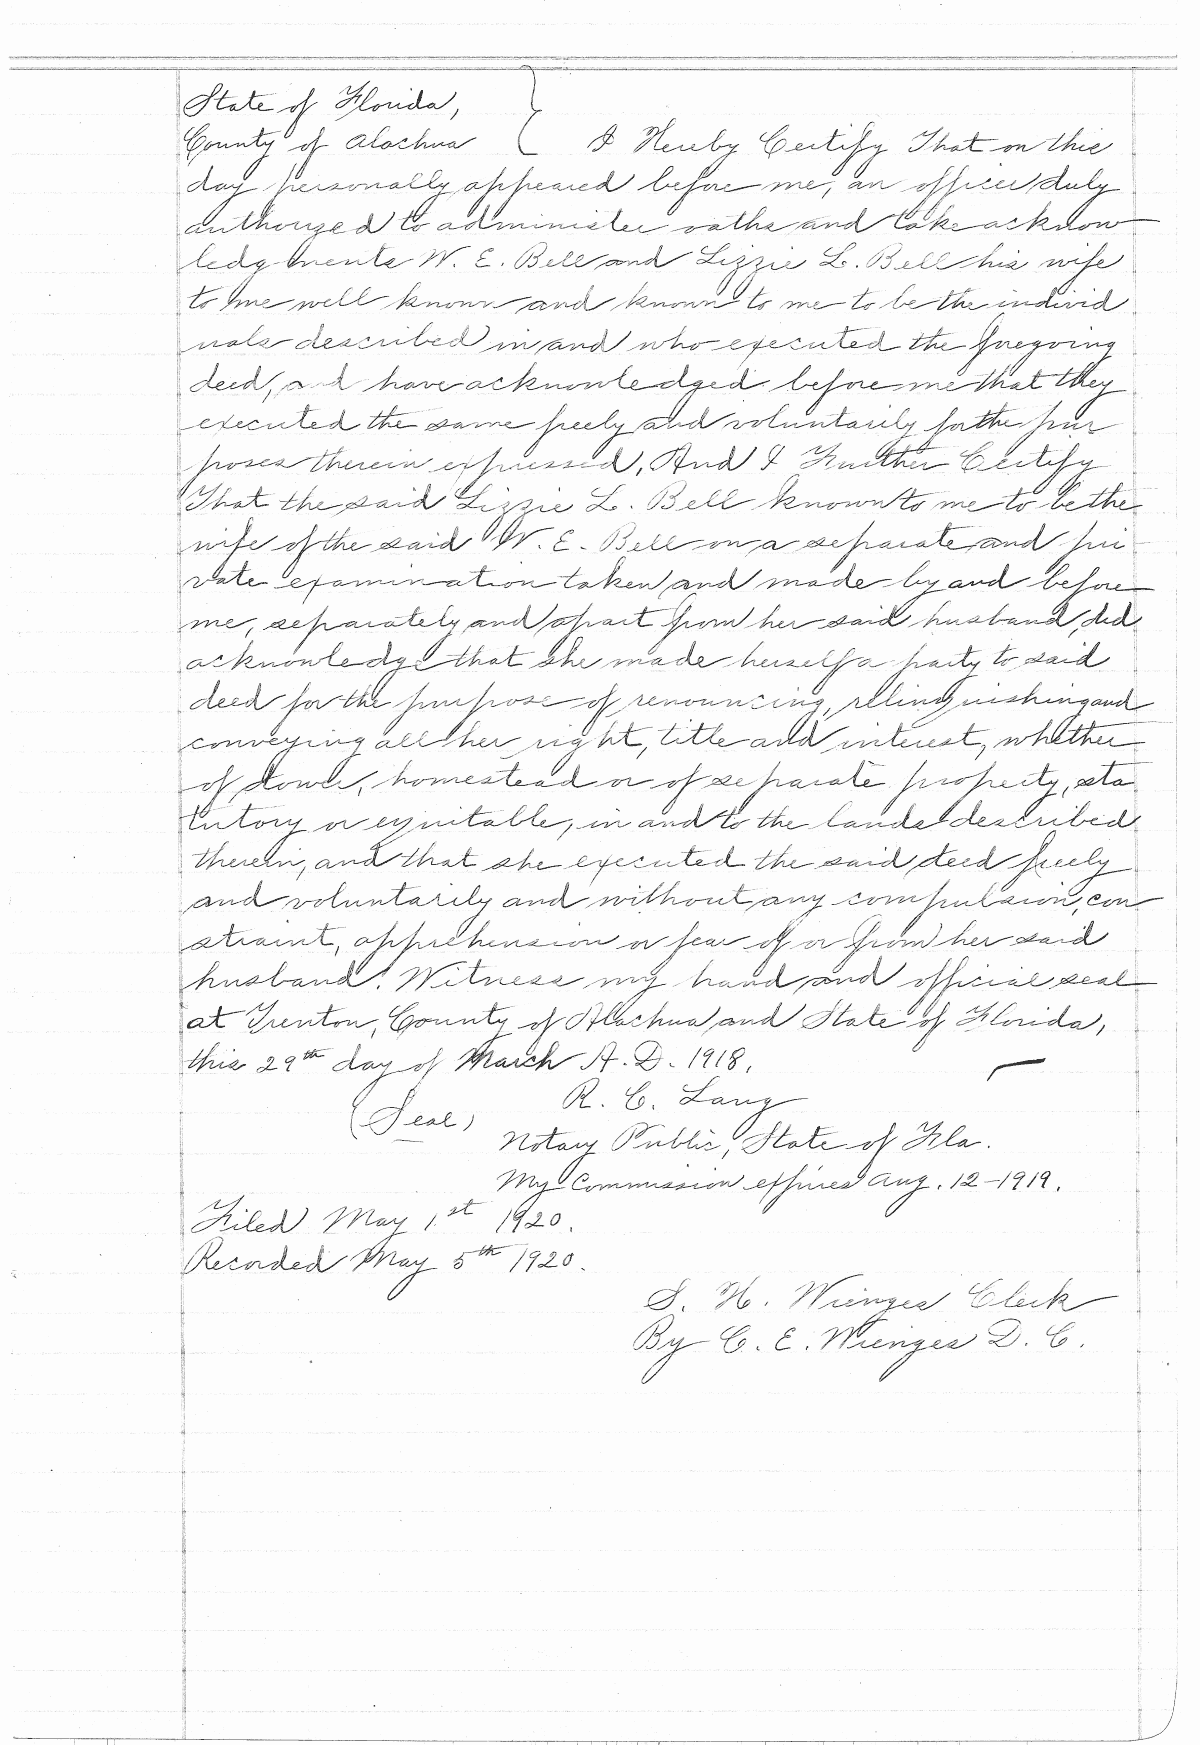 State of Florida,
County of Alachua } I Hereby Certify That on this
day personally appeared before me, an officer duly
authorized to administer oaths and take acknow
ledgments W. E. Bell and Lizzie L. Bell his wife
to me well known and known to me to be the individ
uals described in and who executed the foregoing
deed, and have acknowledged before me that they
executed the same freely and voluntarily for the pur
poses therein expressed, And I Further Certify
That the said Lizzie L. Bell known to me to be the
wife of the said W. E. Bell on a separate and pri
vate examination taken and made by and before
me, separately and apart from her said husband, did
acknowledge that she made herself a party to said
deed for the purpose of renouncing, relinquishing and
conveying all her right, title and interest, whether
of dower, homestead or of separate property, sta
tutory or equitable, in and to the lands described
therein, and that she executed the said deed freely
and voluntarily and without any compulsion, con
straint, apprehension or fear of or from her said
husband. Witness my hand and official seal
at Trenton, County of Alachua and State of Florida,
this 29th day of March A. D. 1918.
R. C. Lang
(Seal)
Notary Public, State of Fla.
My Commission expires Aug. 12-1919.
Filed May 1st 1920.
Recorded May 5th 1920.
S. H. Wienges Clerk
By C. E. Wienges D. C.